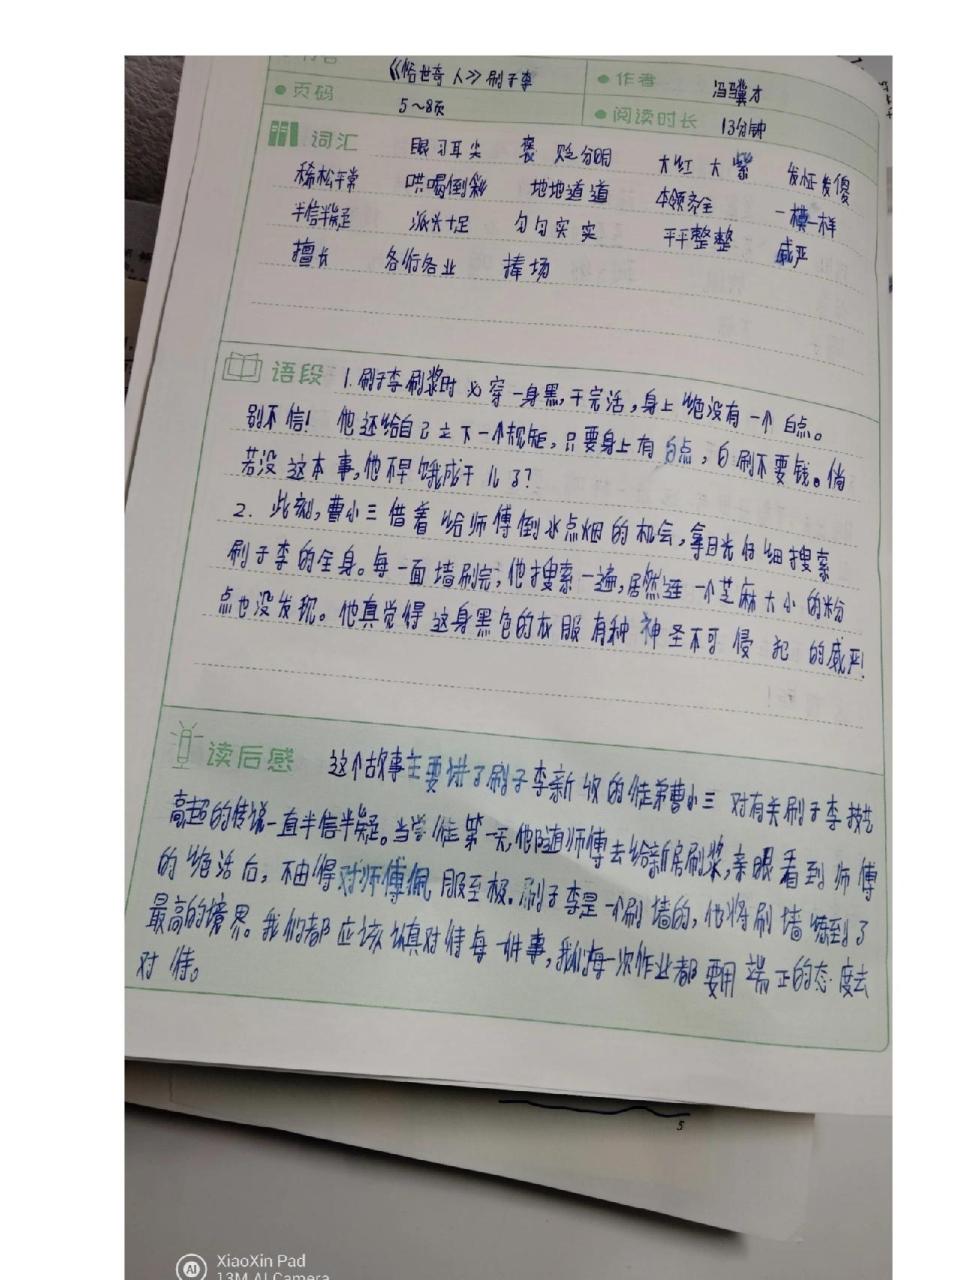 书名 《俗世奇人》刷子李 作者 冯骥才
页码 5~8页 阅读时长 13分钟
词汇 眼习耳尖 褒贬分明 大红大紫 发怔发傻
稀松平常 哄喝倒彩 地地道道 本领齐全 一模一样
半信半疑 派头十足 匀匀实实 平平整整 威严
擅长 各行各业 捧场
语段 1.刷子李刷浆时必穿一身黑,干完活,身上绝没有一个白点。
别不信!他还给自己立下一个规矩,只要身上有白点,白刷不要钱。倘
若没这本事,他不早饿成干儿了?
2. 此刻,曹小三借着给师傅倒水点烟的机会,拿目光仔细搜索
刷子李的全身。每一面墙刷完,他搜索一遍,居然连一个芝麻大小的粉
点也没发现。他真觉得这身黑色的衣服有种神圣不可侵犯的威严!
读后感 这个故事主要讲了刷子李新收的徒弟曹小三对有关刷子李技艺
高超的传说一直半信半疑。当学徒第一天,他随师傅去给新房刷浆,亲眼看到师傅
的绝活后,不由得对师傅佩服至极。刷子李是一个刷墙的,他将刷墙练到了
最高的境界。我们都应该认真对待每一件事,我们每一次作业都要用端正的态度去
对待。
5
AI XiaoXin Pad
13M AI Camera